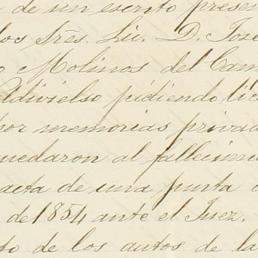 de un escrito presen
los Sres. Lic. D. José
o Molinos del Cam
Valdivielso pidiendo lic
por memorias privad
quedaron al fallecimi
acta de una junta c
de 1854 ante el Juez.
to de los autos de la